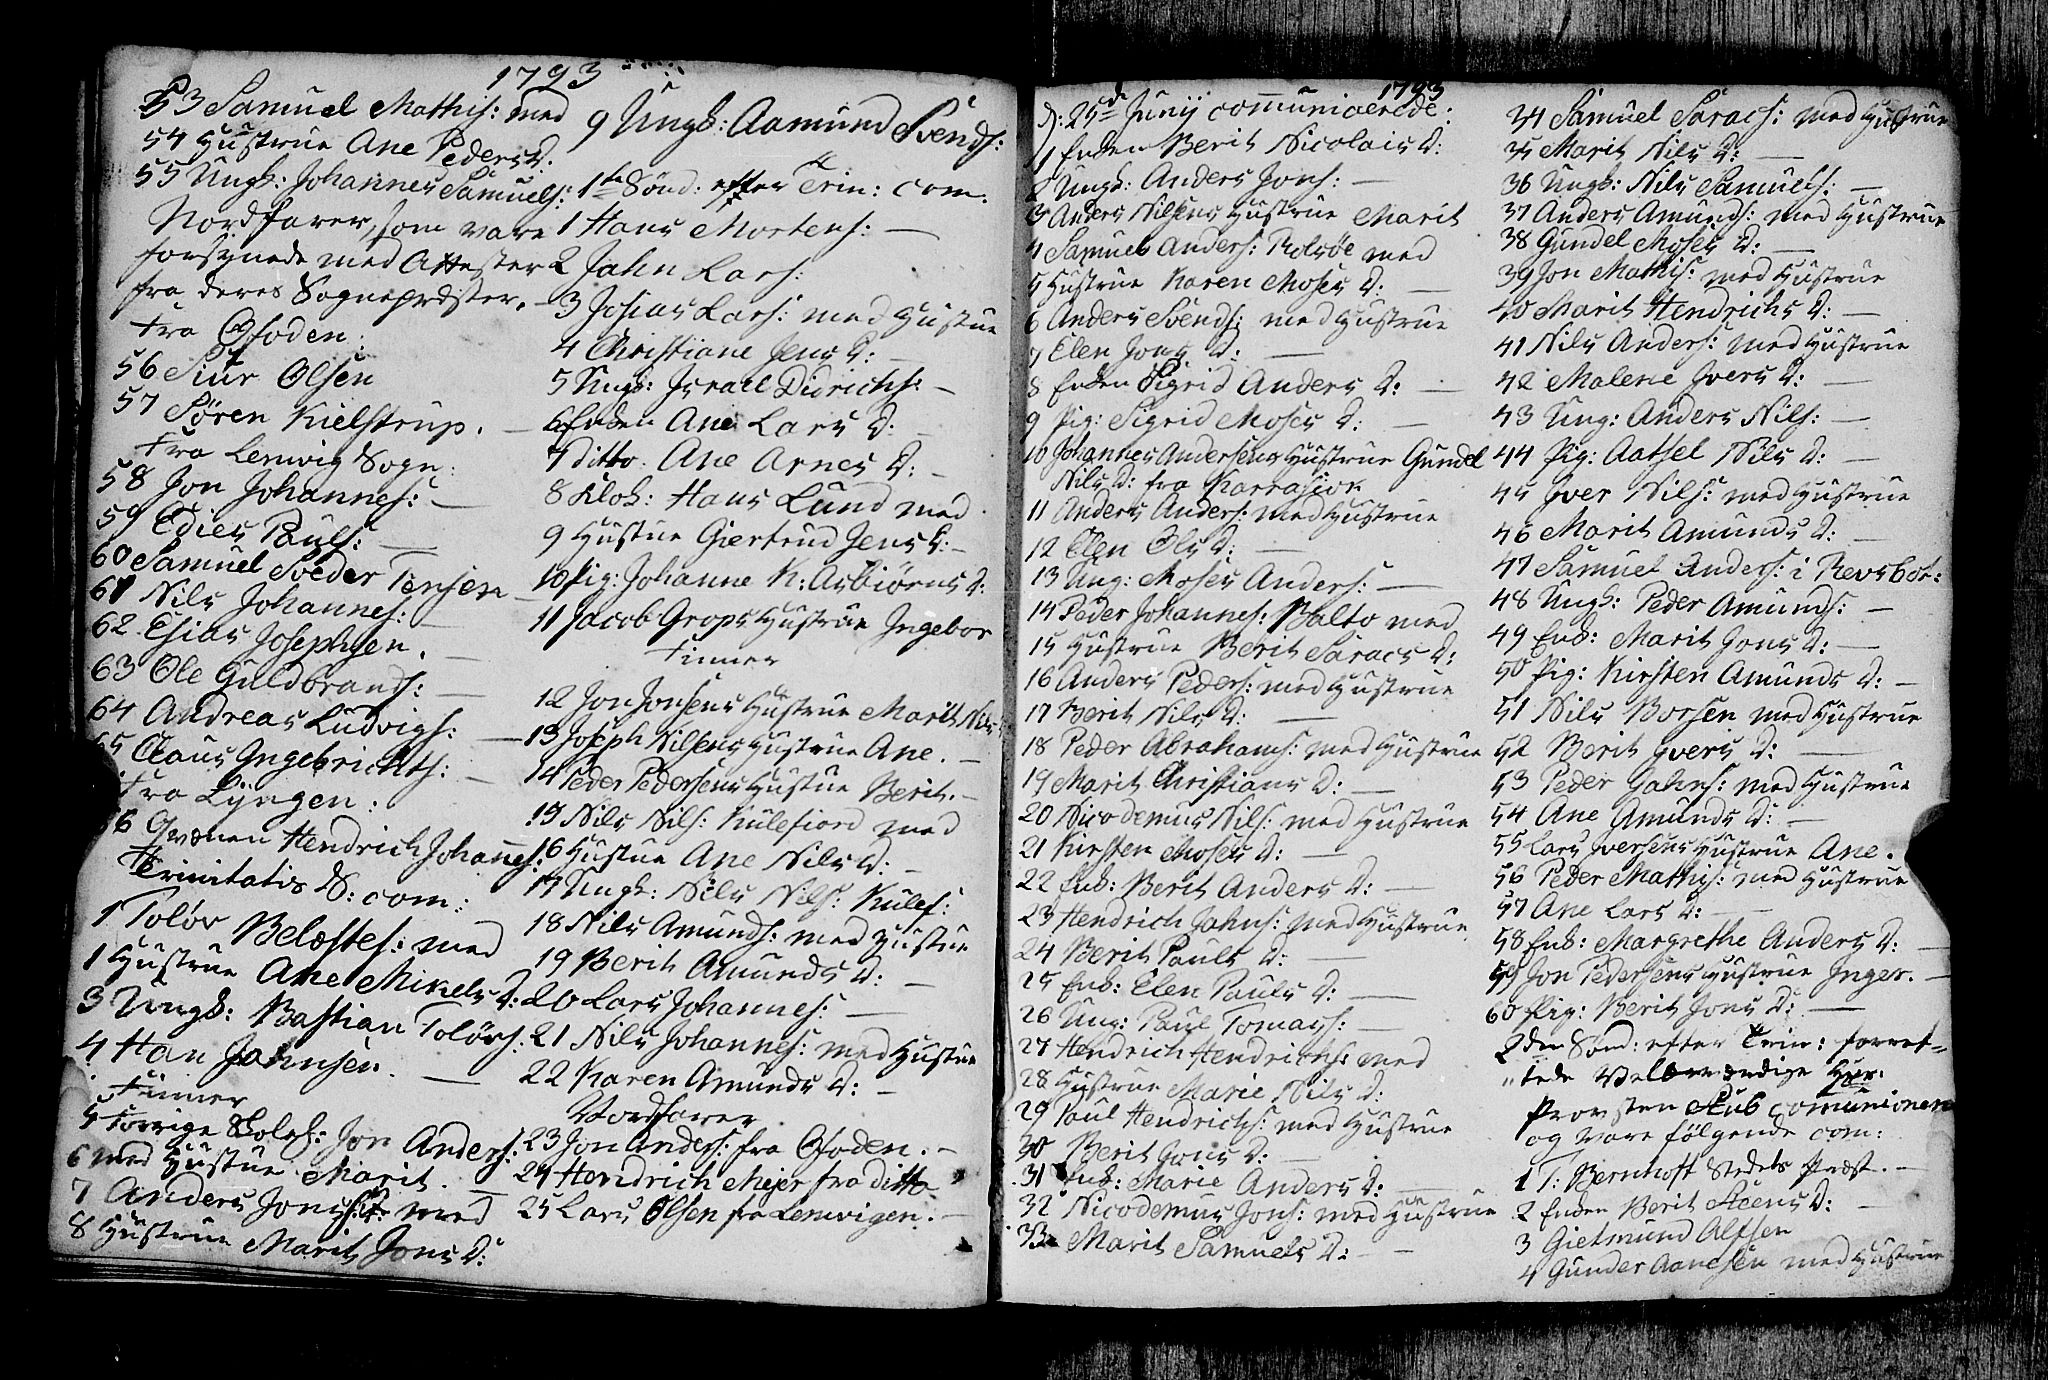 1793
53 Samuel Mathis: med
54 Hustrue Ane Peders D:
55 Ungk: Johannes Samuels:
Nordfarer, som vare
forsynede med Attester
fra deres Sognepræster.
Fra Ofoden:
56 Siur Olsen
57 Søren Kielstrup.
Fra Lenvig Sogn:
58 Jon Johannes: —
59 Edies Pauls: —
60 Samuel Peder Tensen —
61 Nils Johannes: —
62 Esias Josephsen. —
63 Ole Guldbrands: —
64 Andreas Ludvigs: —
65 Claus Ingebrichts: —
Fra Lyngen:
66 Qvænen Hendrich Johannes:
Trinitatis S: com:
1 Toløv Belæstes: med
1 Hustrue Ane Mikels D:
3 Ungk: Bastian Toløvs:
4 Han Jahnsen. —
Finner
5 Forrige Skoles: Jon Anders:
6 med Hustue Marit. —
7 Anders Jons: med
8 Hustrue Marit Jons D:
9 Ungk: Aamund Svends:
1te Sønd: efter Trin: com.
1 Hans Mortens: —
2 Jahn Lars:
3 Josias Lars: med Hustue
4 Christiane Jens D: —
5 Ungk: Israel Didrichs: —
6 Enken Ane Lars D: —
7 ditto. Ane Arnes D: —
8 Klok: Hans Lund med
9 Hustue Giertrud Jens D: —
10 Pig: Johanne K: Asbiørns D:
11 Jacob Grops Hustrue Ingebor
Finner
12 Jon Jonsens Hustrue Marit Nils
13 Joseph Nilsens Hustrue Ane. —
14 Peder Pedersens Hustue Berit. —
15 Nils Nils: Kulefiord med
16 Hustue Ane Nils D: —
17 Ungk: Nils Nils: Kulef:
18 Nils Amunds: med Hustue
19 Berit Amunds D: —
20 Lars Johannes: —
21 Nils Johannes: med Hustue
22 Karen Amunds D: —
Nordfarer
23 Jon Anders: fra Ofoden. —
24 Hendrich Mejer fra ditto
25 Lars Olsen fra Lenvigen. —
1793
D: 25de Junij communicerede:
1 Enken Berit Nicolais D:
2 Ungk: Anders Jons: —
3 Anders Nilsens Hustrue Marit
4 Samuel Anders: Rolvsøe med
5 Hustrue Karen Moses D: —
6 Anders Svends: med Hustrue
7 Elen Jons D: —
8 Enken Sigrid Anders D: —
9 Pig: Sigrid Moses D: —
10 Johannes Andersens Hustrue Gundel
Nils D: fra Karrasiok
11 Anders Anders: med Hustrue
12 Elen Ols D: —
13 Ung: Moses Anders: —
14 Peder Johannes: Balto med
15 Hustrue Berit Saracs D:
16 Anders Peders: med Hustrue
17 Berit Nils D: —
18 Peder Abrahams: med Hustrue
19 Marit Christians D: —
20 Nicodemus Nils: med Hustrue
21 Kirsten Moses D: —
22 Enk: Berit Anders D: —
23 Hendrich Jahns: med Hustrue
24 Berit Pauls D: —
25 Enk: Elen Pauls D: —
26 Ung: Paul Tomas: —
27 Hendrich Hendrichs: med
28 Hustrue Marie Nils D:
29 Paul Hendrichs: med Hustrue
30 Berit Jons D: —
31 Enk: Marie Anders D: —
32 Nicodemus Jons: med Hustrue
33 Marit Samuels D: —
34 Samuel Saracs: med Hustrue
35 Marit Nils D: —
36 Ungk: Nils Samuels: —
37 Anders Amunds: med Hustrue
38 Gundel Moses D: —
39 Jon Mathis: med Hustrue
40 Marit Hendrichs D: —
41 Nils Anders: med Hustrue
42 Malene Ivers D: —
43 Ung: Anders Nils: —
44 Pig: Aatsel Nils D: —
45 Iver Nils: med Hustrue
46 Marit Amunds D: —
47 Samuel Anders: i Revsbot:
48 Ungk: Peder Amunds: —
49 Enk: Marit Jons D: —
50 Pig: Kirsten Amunds D: —
51 Nils Borsen med Hustrue
52 Berit Ivers D: —
53 Peder Jahns: med Hustrue
54 Ane Amunds D: —
55 Lars Iversens Hustrue Ane.
56 Peder Mathis: med Hustrue
57 Ane Lars D: —
58 Enk: Margrethe Anders D: —
59 Jon Pedersens Hustrue Inger. —
60 Pig: Berit Jons D: —
2den Sønd: efter Trin: forret-
tede Velærværdige Her:
Provsten Aub comunionen
og vare følgende com:
1 T: Bernhoft Stedets Præst. —
2 Enken Berit Steens D: —
3 Gietmund Alfsen
4 Gunder Aanesen med Hustrue